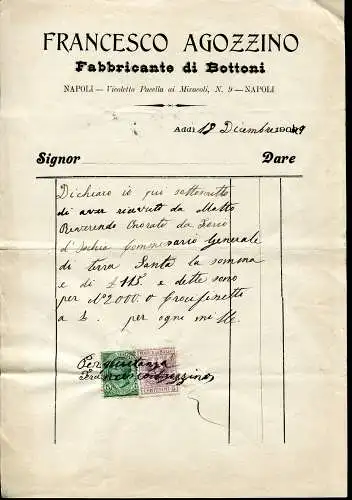 FRANCESCO AGOZZINO
Fabbricante di Bottoni
NAPOLI — Vicoletto Pacella ai Miracoli, N. 9 — NAPOLI
Addì 18 Dicembre 1909
Signor Dare
Dichiaro io qui sottoscritto
di aver ricevuto da Molto
Reverendo Onorato da Forio
d'Ischia Commissario Generale
di terra Santa la somma
e di £ 115 e dette sono
per N° 2000
per ogni
Per quietanza
Francesco Agozzino